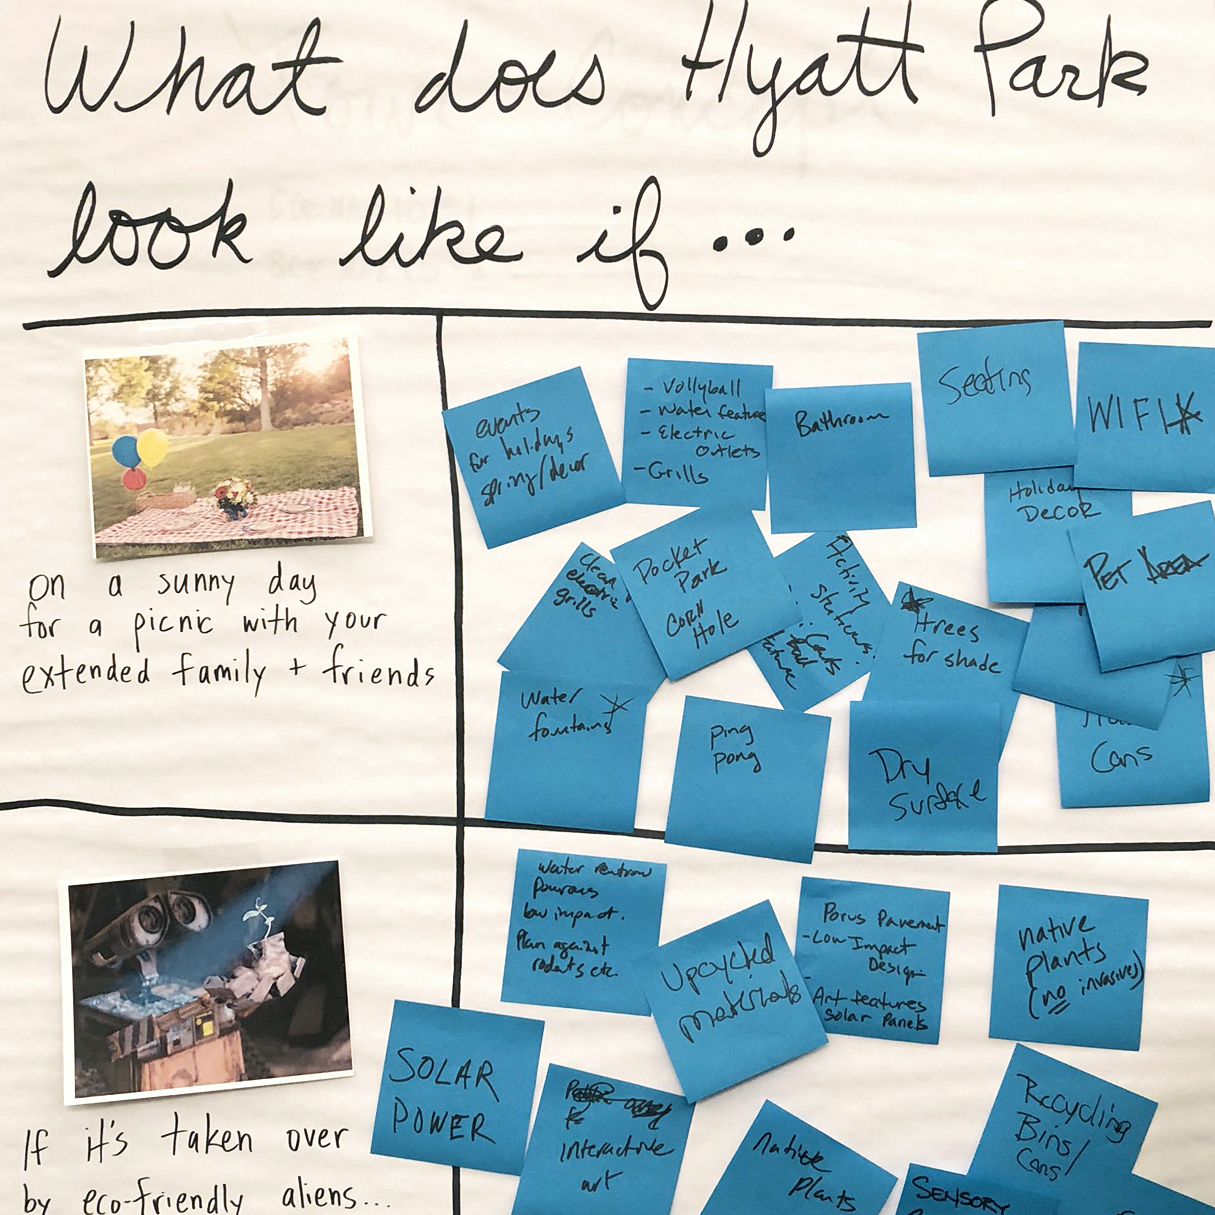 What does Hyatt Park
look like if...
on a sunny day
for a picnic with your
extended family + friends
events
for holidays
spring/decor
- Vollyball
- Water feature
- Electric
Outlets
- Grills
Bathroom
Seating
WIFI
Holiday
Decor
PET AREA
Clean
electric
grills
Pocket
Park
CORN
Hole
Activity
stations:
trees
for shade
Water
fountains
ping
pong
Dry
Surface
Cans
If it's taken over
by eco-friendly aliens...
Water
Pourous
low impact.
Plan against
rodats etc
Upcycled
materials
Porus Pavement
- Low Impact
Design
-
Art features
Solar Panels
native
plants
(no invasives)
SOLAR
POWER
interactive
art
native
plants
Recycling
Bins/
Cans/
SENSORY